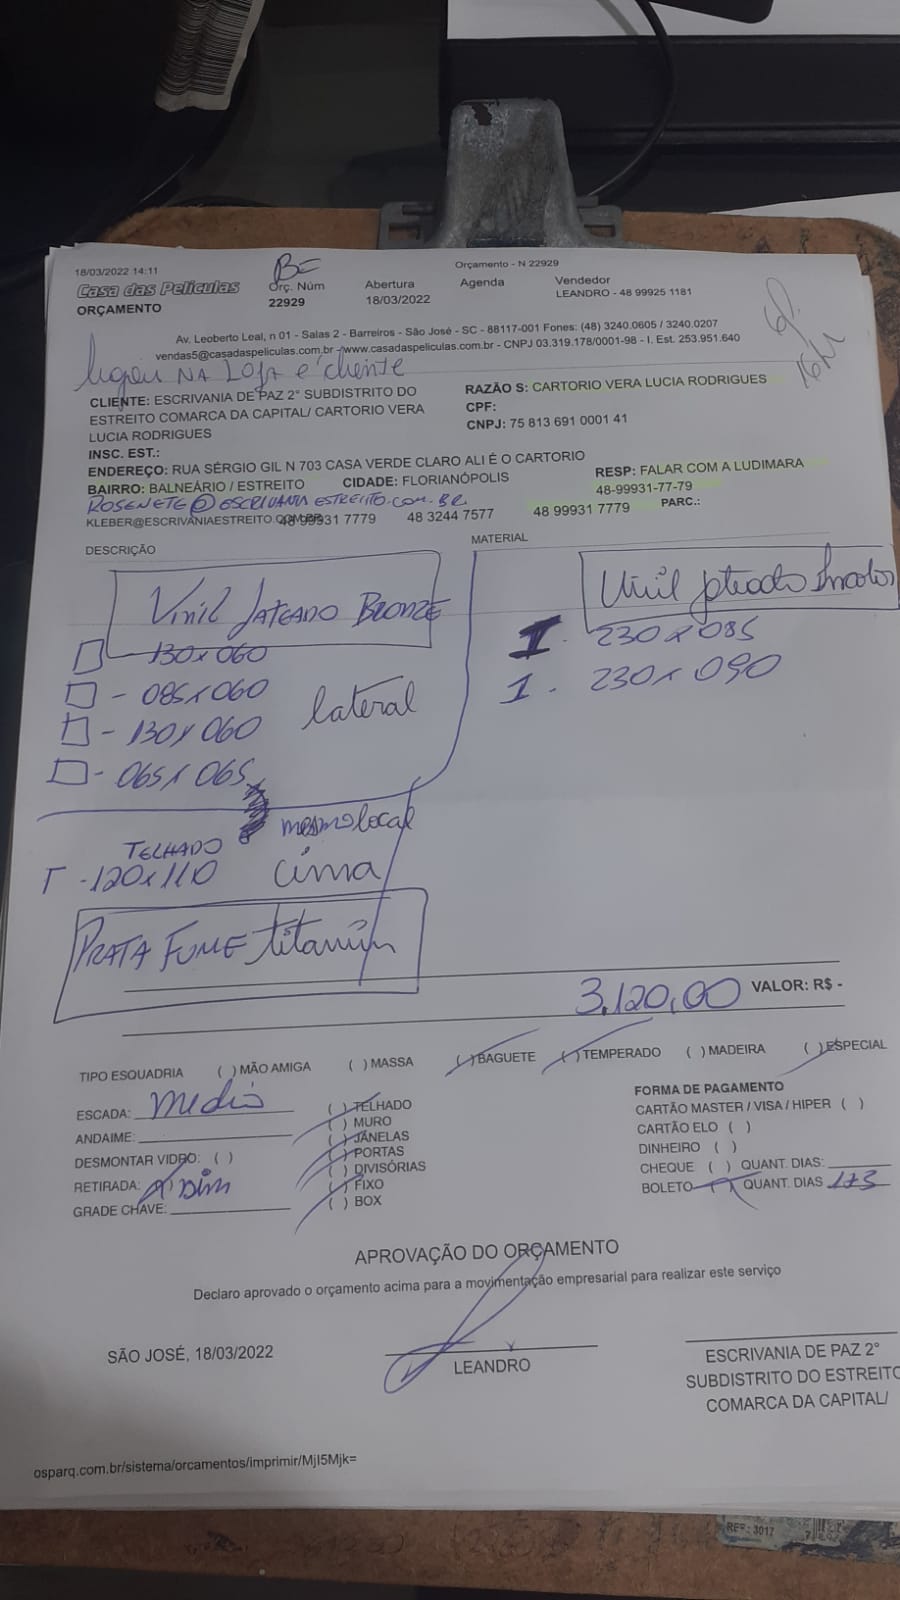 18/03/2022 14:11
Orçamento - N 22929
BE
Casa das Películas
Orç. Núm
Abertura
Agenda
Vendedor
ORÇAMENTO
22929
18/03/2022
LEANDRO - 48 99925 1181
Av. Leoberto Leal, n 01 - Salas 2 - Barreiros - São José - SC - 88117-001 Fones: (48) 3240.0605 / 3240.0207
vendas5@casadaspeliculas.com.br - www.casadaspeliculas.com.br - CNPJ 03.319.178/0001-98 - I. Est. 253.951.640
ligou NA LOJA é cliente
CLIENTE: ESCRIVANIA DE PAZ 2° SUBDISTRITO DO
ESTREITO COMARCA DA CAPITAL/ CARTORIO VERA
LUCIA RODRIGUES
RAZÃO S: CARTORIO VERA LUCIA RODRIGUES
CPF:
CNPJ: 75 813 691 0001 41
INSC. EST.:
ENDEREÇO: RUA SÉRGIO GIL N 703 CASA VERDE CLARO ALI É O CARTORIO
BAIRRO: BALNEÁRIO / ESTREITO
CIDADE: FLORIANÓPOLIS
RESP: FALAR COM A LUDIMARA
48-99931-77-79
ROSENETE@ESCRIVANIAESTREITO.COM.BR
PARC.:
KLEBER@ESCRIVANIAESTREITO.COM.BR
48 99931 7779
48 3244 7577
48 99931 7779
DESCRIÇÃO
MATERIAL
Vinil JATEADO BRONZE
- 130x060
- 085x060
- 130x060
- 065x065
lateral
Vinil jateado Incolor
1 - 230x085
1 - 230x090
mesmo local
TELHADO
- 120x110 cima
PRATA FUME titanium
3.120,00 VALOR: R$ -
TIPO ESQUADRIA ( ) MÃO AMIGA ( ) MASSA ( ) BAGUETE ( ) TEMPERADO ( ) MADEIRA ( ) ESPECIAL
ESCADA: Media
ANDAIME:
DESMONTAR VIDRO: ( )
RETIRADA: ( ) Sim
GRADE CHAVE:
( ) TELHADO
( ) MURO
( ) JANELAS
( ) PORTAS
( ) DIVISÓRIAS
( ) FIXO
( ) BOX
FORMA DE PAGAMENTO
CARTÃO MASTER / VISA / HIPER ( )
CARTÃO ELO ( )
DINHEIRO ( )
CHEQUE ( ) QUANT. DIAS:
BOLETO ( ) QUANT. DIAS 1+3
APROVAÇÃO DO ORÇAMENTO
Declaro aprovado o orçamento acima para a movimentação empresarial para realizar este serviço
SÃO JOSÉ, 18/03/2022
LEANDRO
ESCRIVANIA DE PAZ 2°
SUBDISTRITO DO ESTREITO
COMARCA DA CAPITAL/
osparq.com.br/sistema/orcamentos/imprimir/MjI5Mjk=
REF: 3017